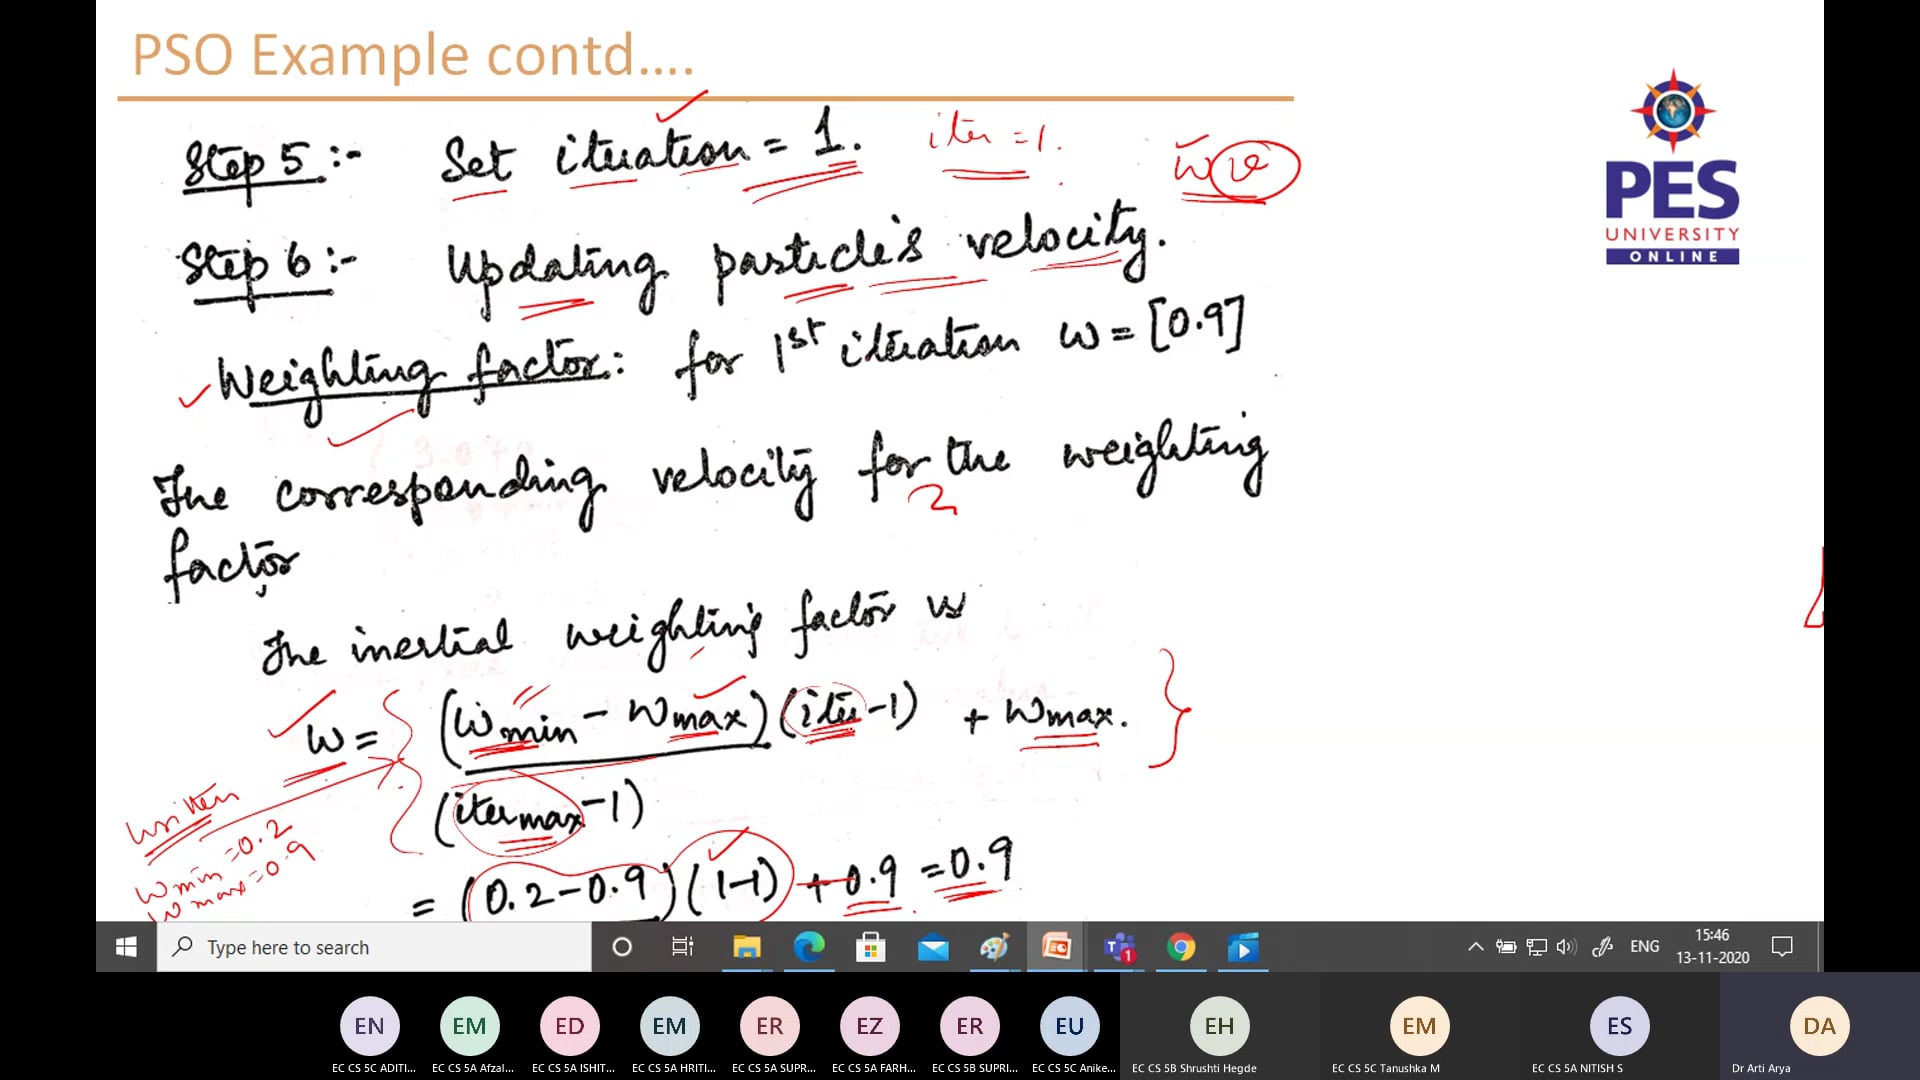 PSO Example contd....
Step 5 :- Set iteration = 1. iter = 1. w v
Step 6 :- Updating particle's velocity.
Weighting factor : for 1st iteration w = [0.9]
The corresponding velocity for the weighting
factor,
The inertial weighting factor is
w = (wmin - wmax) (iter - 1) + wmax.
(itermax - 1)
written
wmin = 0.2
wmax = 0.9
= (0.2 - 0.9) (1-1) + 0.9 = 0.9
PES
UNIVERSITY
ONLINE
Type here to search
ENG
15:46
13-11-2020
1
EN EM ED EM ER EZ ER EU EH EM ES DA
EC CS 5C ADITI... EC CS 5A Afzal... EC CS 5A ISHIT... EC CS 5A HRITI... EC CS 5A SUPR... EC CS 5A FARH... EC CS 5B SUPRI... EC CS 5C Anike... EC CS 5B Shrushti Hegde EC CS 5C Tanushka M EC CS 5A NITISH S Dr Arti Arya